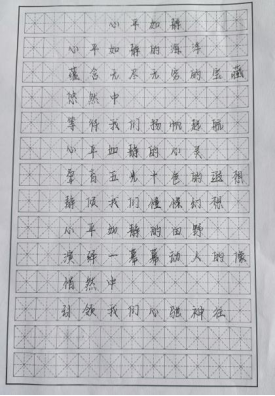 心平如静
心平如静的海洋
蕴含无尽无穷的宝藏
悠然中
等待我们扬帆起航
心平如静的心灵
孕育五光十色的遐想
静候我们憧憬幻想
心平如静的田野
演绎一幕幕动人的
悄然中
引领我们心驰神往